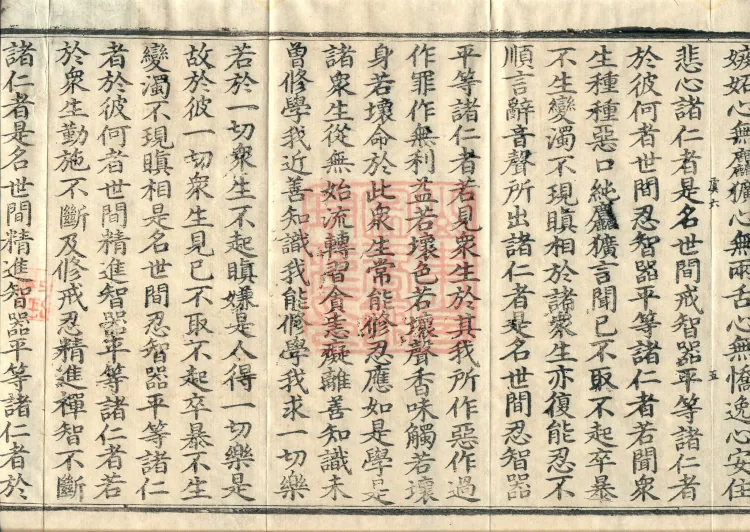 嫉妬心無麤獷心無兩舌心無憍逸心安住
悲心諸仁者是名世間戒智器平等諸仁者
虞六
五
於彼何者世間忍智器平等諸仁者若聞衆
生種種惡口純麤獷言聞已不取不起卒暴
不生變濁不現瞋相於諸衆生亦復能忍不
順言辭音聲所出諸仁者是名世間忍智器
平等諸仁者若見衆生於其我所作惡作過
作罪作無利益若壞色若壞聲香味觸若壞
身若壞命於此衆生常能修忍應如是學是
諸衆生從無始流轉習貪恚癡離善知識未
曾修學我近善知識我能修學我求一切樂
若於一切衆生不起瞋嫌是人得一切樂是
故於彼一切衆生見已不取不起卒暴不生
變濁不現瞋相是名世間忍智器平等諸仁
者於彼何者世間精進智器平等諸仁者若
於衆生勤施不斷及修戒忍精進禪智不斷
諸仁者是名世間精進智器平等諸仁者於